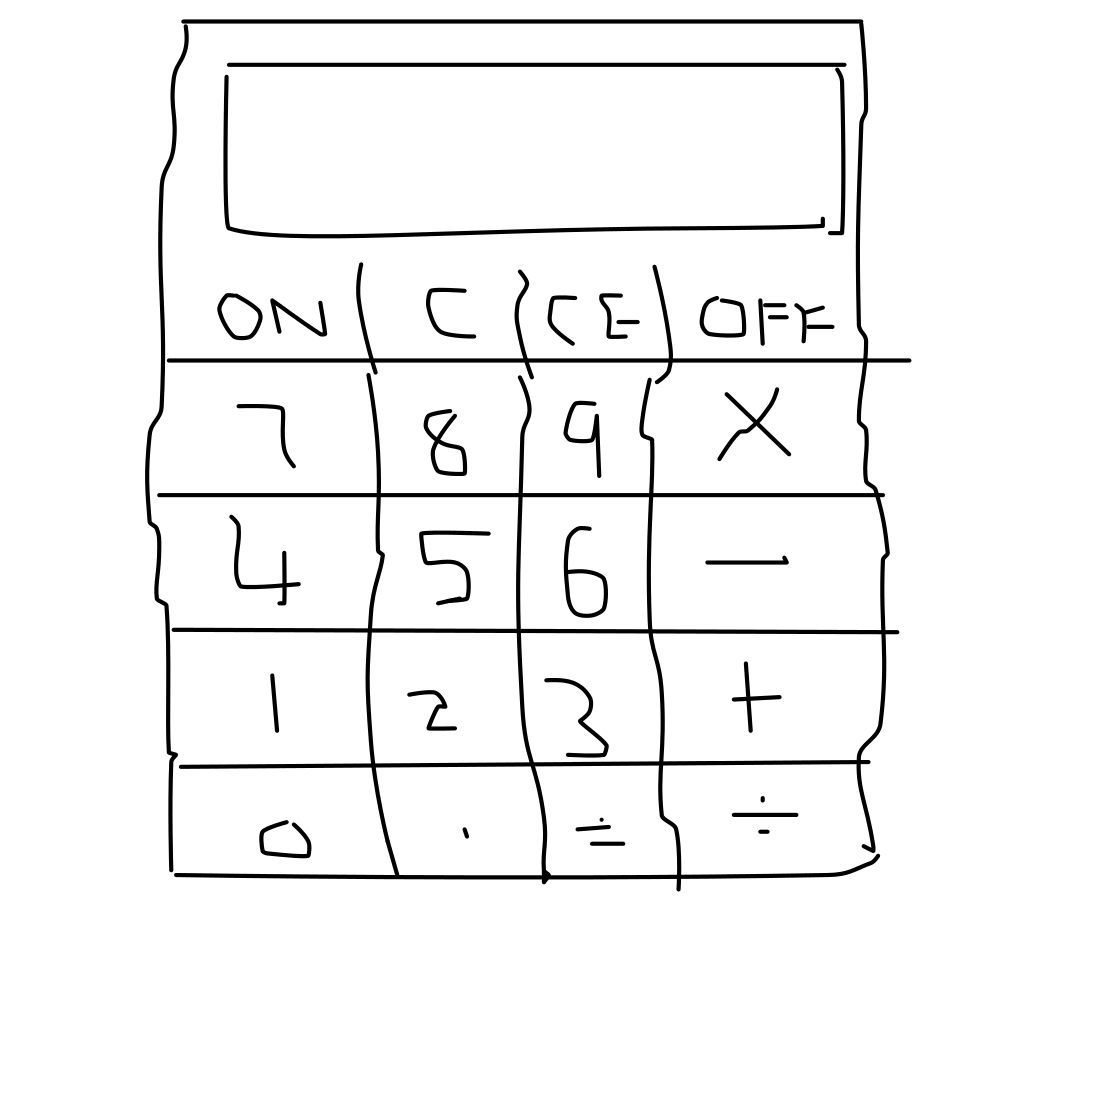 ON C CE OFF
7 8 9 X
4 5 6 —
1 2 3 +
0 . = ÷